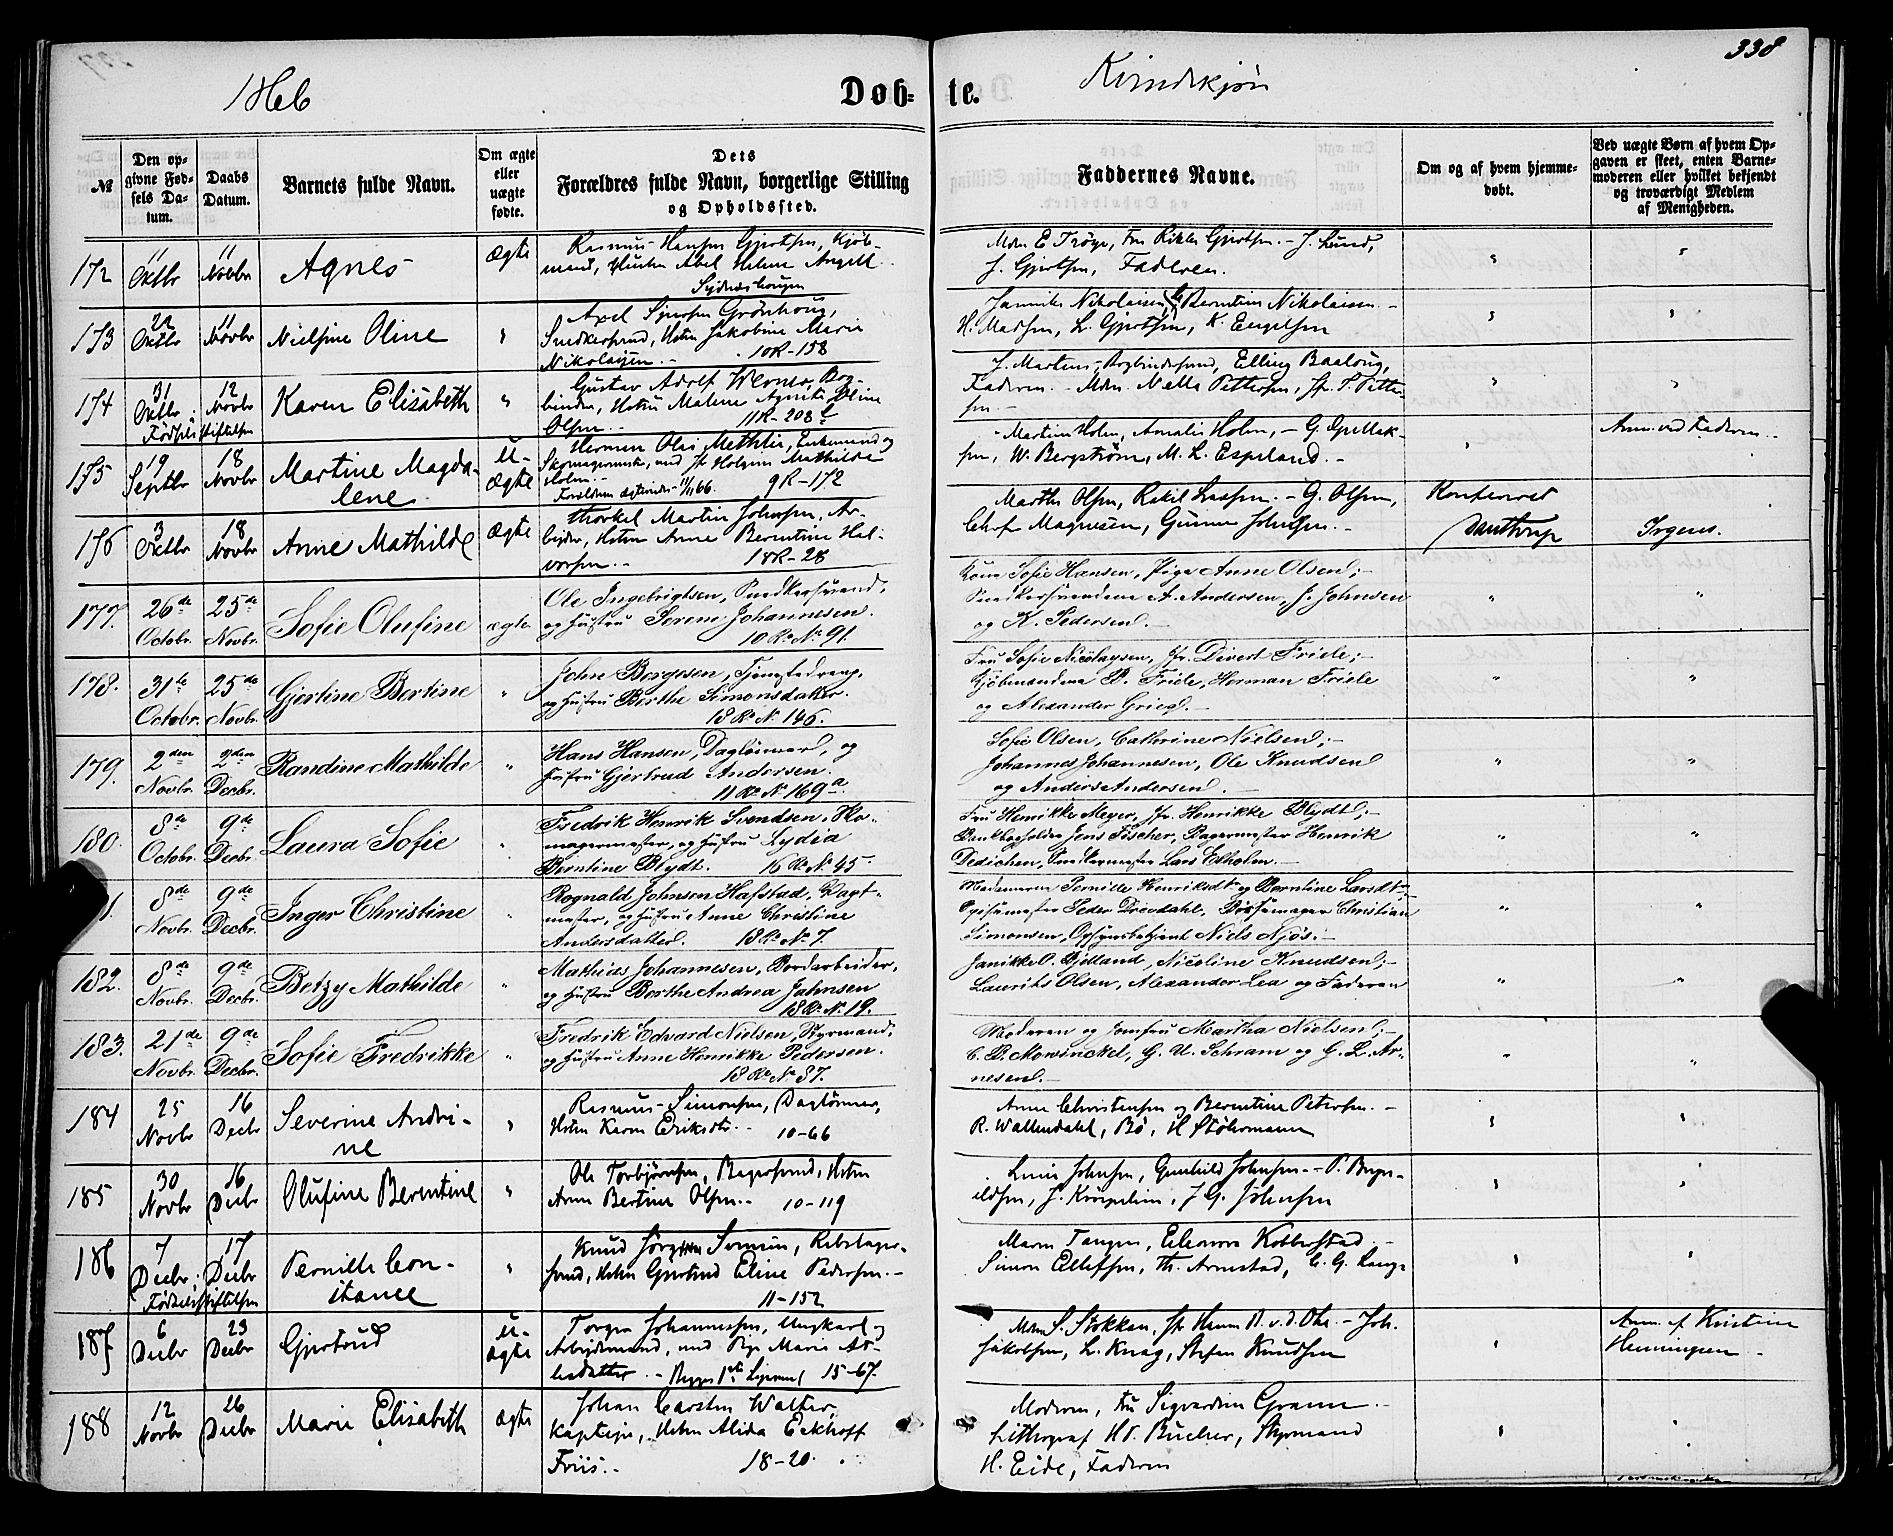 338
1866
Døb-te.
Kvindekjøn
№
Den op-
givne Fød-
sels Da-
tum.
Daabs
Datum.
Barnets fulde Navn.
Om ægte
eller
uægte
fødte.
Dets
Forældres fulde Navn, borgerlige Stilling
og Opholdssted.
Faddernes Navne.
Om og af hvem hjemme-
døbt.
Ved uægte Børn af hvem Op-
gaven er skeet, enten Barne-
moderen eller hvilket bekjendt
og troværdigt Medlem
af Menigheden.
172
11 Octbr
11 Novbr
Agnes
Ægte
Rasmus Hansen Gjertsen, Kjøb-
mand, Hustru Abel Helene Angell
Sydneshougen
J. Gjertsen, Faderen.
173
22 Octbr
11 Novbr
Nielsine Oline
Axel Grønhoug,
Snedkersvend, Hstru Jakobine Marie
Nikolaisen.- 10R-158
Jannike Nikolaisen, Berntine Nikolaisen -
H. Madsen, L. Gjertsen, K. Engelsen
174
31 Octbr
12 Novbr
Karen Elisabeth
Gustav Adolf Werner, Bog-
binder, Hstru Malene Agnete Oline
Olsen.- 11R-208
J. Martens, Bogbindersvend, Elling
Faderen.- Mdm Petersen,
175
Fødselsstiftelsen
19 Septbr
18 Novbr
Martine Magda-
lene
U-
Ægte
Herman Olai Enkemand og
Skomagersvend, med Mathilde
Holm.-
9R-172
Martine Holm, Amalie Holm, - G.
W. Bergstrøm, M. L. Espeland.-
Anm. ved Faderen.
176
3 Octbr
18 Novbr
Anne Mathilde
Ægte
Thorkel Martin Johnsen, Ar-
bejder, Hstru Anne Berentine Hal-
vorsen.- 18R-28
Marthe Olsen, Rakel Larsen.- G. Olsen,
Magnesen, Gunner Johnsen.-
Konfirmeret
Irgens.
177.
26de Octobr.
25de Novbr.
Sofie Olufine
ægte
Ole Ingebrigtsen, Snedkersvend,
og Hustru Serene Johannesen.
10 Re No 91.
Kone Sofie Hansen, Pige Anne Olsen;-
Snedkersvendene A. Andersen, J. Johnsen
og K. Pedersen.-
178.
31te Octobr.
25de Novbr.
Gjertine Bertine
John Børgesen, Tjenestedreng,
og Hustru Berthe Simonsdatter.
18 Re No 146.
Fru Sofie Nicolaysen, Jfr. Divert Friele;-
Kjøbmændene P. Friele, Herman Friele
og Alexander Grieg.-
179.
2den Novbr.
2den Decbr.
Randine Mathilde
Hans Hansen, Daglønner, og
Hustru Gjertrud Andersen.
11 Re No 169a.
Sofie Olsen, Cathrine Nielsen;-
Johannes Johannesen, Ole Knudsen
og Anders Andersen.-
180.
8de Octobr.
9de Decbr.
Laura Sofie
Fredrik Henrik Svendsen, Sko-
magermester, og Hustru Lydia
Berntine Blydt. 16 Re No 45
Fru Henrikke Meyer, Jfr. Henrikke Blydt;-
Bankbogholder Jens Fischer, Bagermester Henrik
Dedichen, Snedkermester Lars Ekholm.-
1.
8de Novbr.
9de Decbr.
Inger Christine
Rognald Johnsen Hafstad, Vagt-
mester, og Hustru Anne Christine
Andersdatter. 18 Re No 7.
Madamerne Pernille Henriksdtr og Berntine Larsdtr
Spisemester Peder Drevdahl, Bøssemager Christian
Simonsen, Opsynsbetjent Niels Njøs.-
182.
8de Novbr.
9de Decbr.
Betzy Mathilde
Mathias Johannesen, Bordarbeider,
og Hustru Berthe Andrea Jahnsen
18 Re No 19.
Janikke O. Bjelland, Nicoline Knudsen;-
Laurits Olsen, Alexander Lea og Faderen
183.
21de Novbr.
9de Decbr.
Sofie Fredrikke
Fredrik Edvard Nielsen, Styrmand,
og Hustru Anne Henrikke Pedersen.
18 Re No 37.
Moderen og Jomfru Martha Nielsen;-
C. D. Mowinckel, G. U. Schram og G. L. Ar-
nesen.-
184
25 Novbr
16 Decbr
Severine Andri-
ne
Rasmus Simonsen, Daglønner,
Hstru Karen Eriksdtr.- 10-66
Anne Christensen og Berentine Petersen.-
R. Wallendahl, Bø, H. Støhrmann
185
30 Novbr
16 Decbr
Olufine Berentine
Ole Torbjørnsen, Bagersvend, Hstru
Anne Bertine Olsen.- 10-119
Johnsen, Gunhild Johnsen.-
J. G. Johnsen
186
7 Decbr.
17 Decbr
Pernille Con-
stance
Knud Svensen, Rebslager-
svend, Hstru Gjertrud Eline Pedersen.-
11-152
Maren Tangen, Eleonora Kobberstad.-
Simon Ellefsen, Th. Arnestad, C. G. Lange
187
Fødselsstiftelsen
6 Decbr
23 Decbr
Gjertrud
U-
ægte
Torger Johannessen, Ungkarl og
Arbejdsmand, med Pige Marie As-
lesdatter.- 15-67.
Mdm S. Stokken, - Joh.
Jakobsen, L. Knag, Stefen Knudsen
Anm. af Kristine
Henningsen -
188
12 Novbr
26 Decbr
Marie Elisabeth
Ægte
Johan Carsten Walter,
Kaptejn, Hstru Alida Eckhoff
Friis.- 18-20.
Moderen, Fru Sigvardine Gramm.-
Lithograf Bucher, Styrmand
H. Eide, Faderen